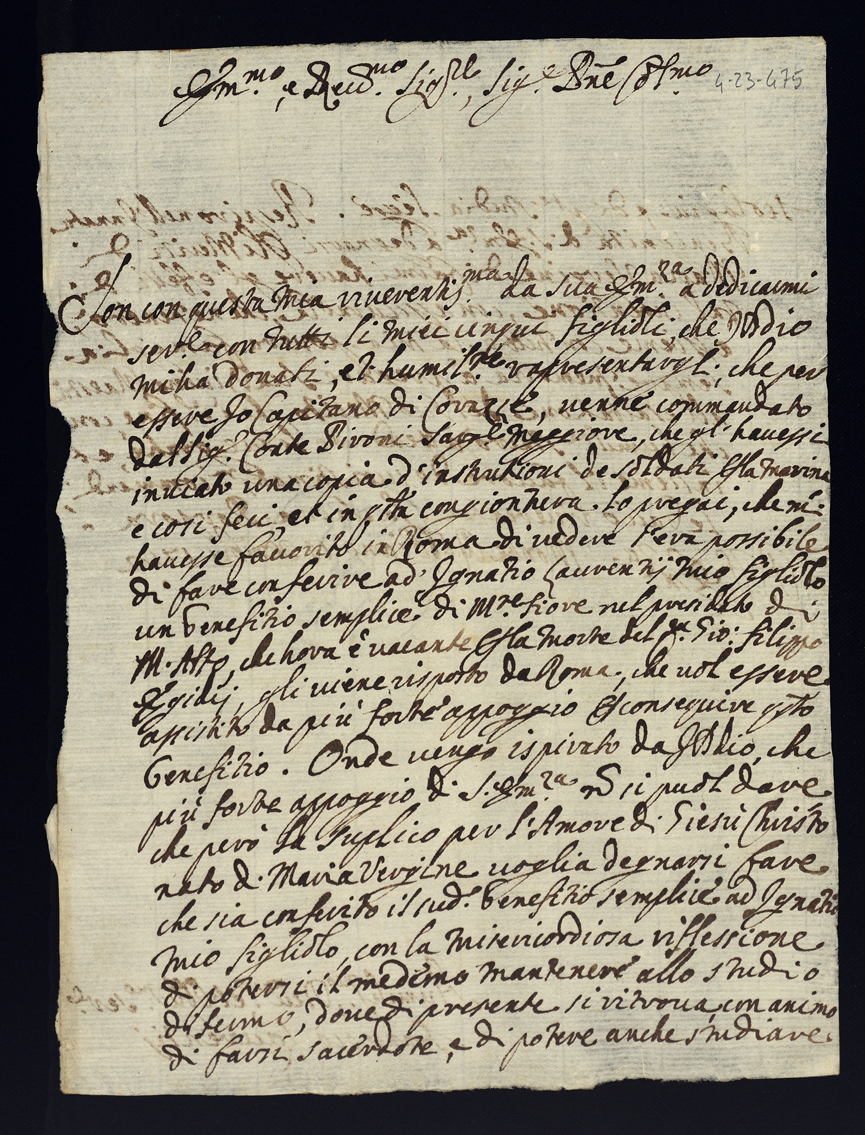 Em.mo, e Reud.mo Sig.re, Sig.e Pne Col.mo
4-23-475
Son con questa mia riverentis.ma da sua Em.za a dedicarmi
ser.e con tutti li miei cinque figlioli, che Iddio
mi ha donati, et humil.re rapresentargli, che per
essere Io Capitano di Corazze, venne commandato
dal Sig.r Conte Pironi Sarg.e Maggiore, che gl'havessi
inviato una copia d'instrutioni de soldati  la marina
e cosi feci, et in qta congiontura lo pregai, che mi
havesse favorito in Roma di vedere s'era possibile
di fare conferire ad Ignatio Laurentij mio figliolo
un benefitio semplice di M.re fiore nel presidato di
M. Alto, che hora è vacante  la morte del q. Gio: filippo
Egidij, gli viene risposto da Roma, che vol essere
assistito da più forte appoggio  conseguire qto
benefitio. Onde vengo ispirato da Iddio, che
più forte appoggio di S. Em.za nō si puol dare
che però la suplico per l'Amore di Giesù Christo
nato di Maria Vergine voglia degnarsi fare
che sia conferito il sud.o benefitio semplice ad Ignatio
mio figliolo, con la misericordiosa riflessione
di potersi il medemo mantenere allo studio
di fermo, dove di presente si ritrova, con animo
di farsi sacerdote, e di potere anche studiare